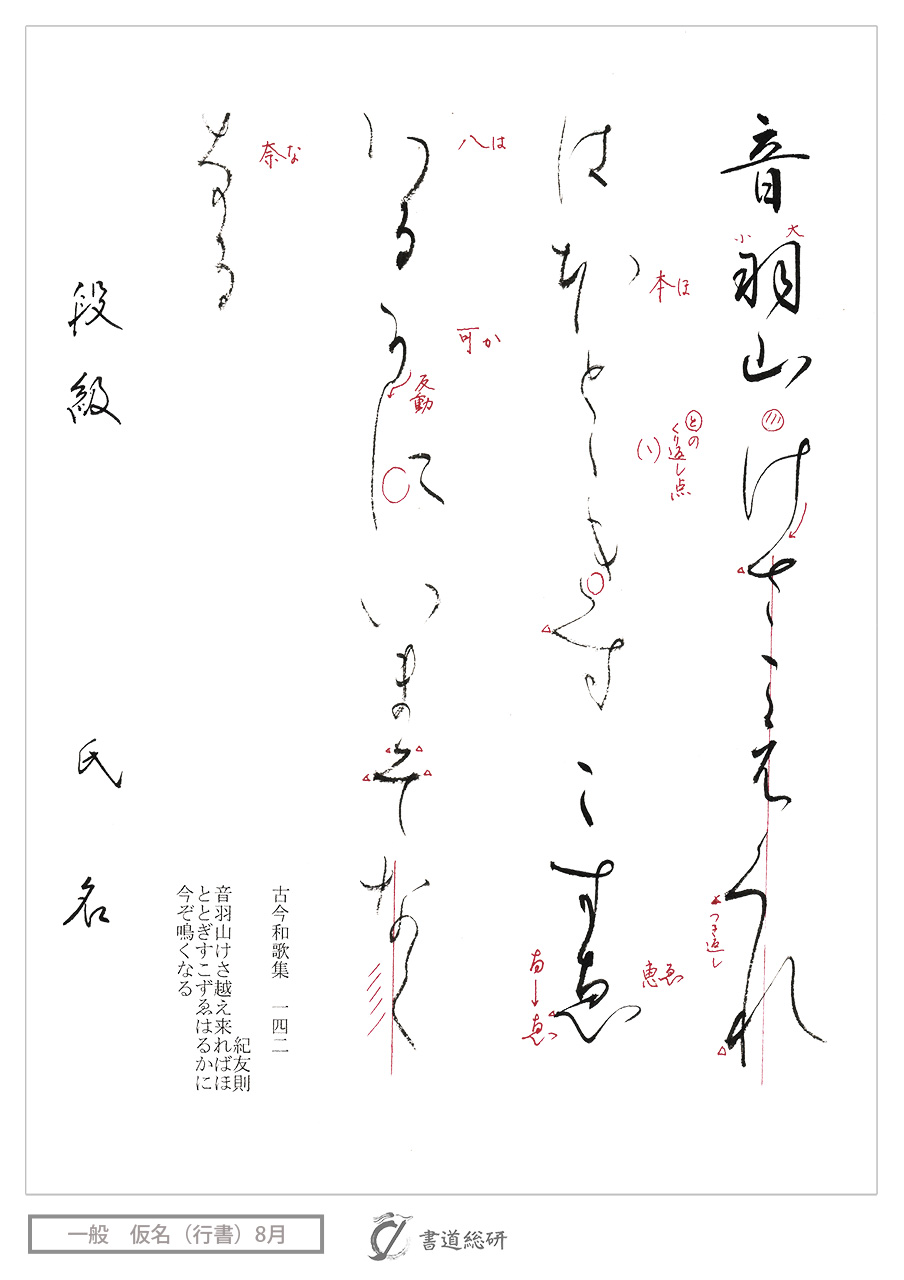 音羽山けさこえくれ
はほとゝきすこすゑ
はるかにいまそなく
なる
段級 氏名
大
小
との
くり返し点
つき返し
本ほ
恵ゑ
八は
可か
反動
奈な
古今和歌集 一四二
紀友則
音羽山けさ越え来ればほ
ととぎすこずゑはるかに
今ぞ鳴くなる
一般 仮名（行書）8月
書道総研